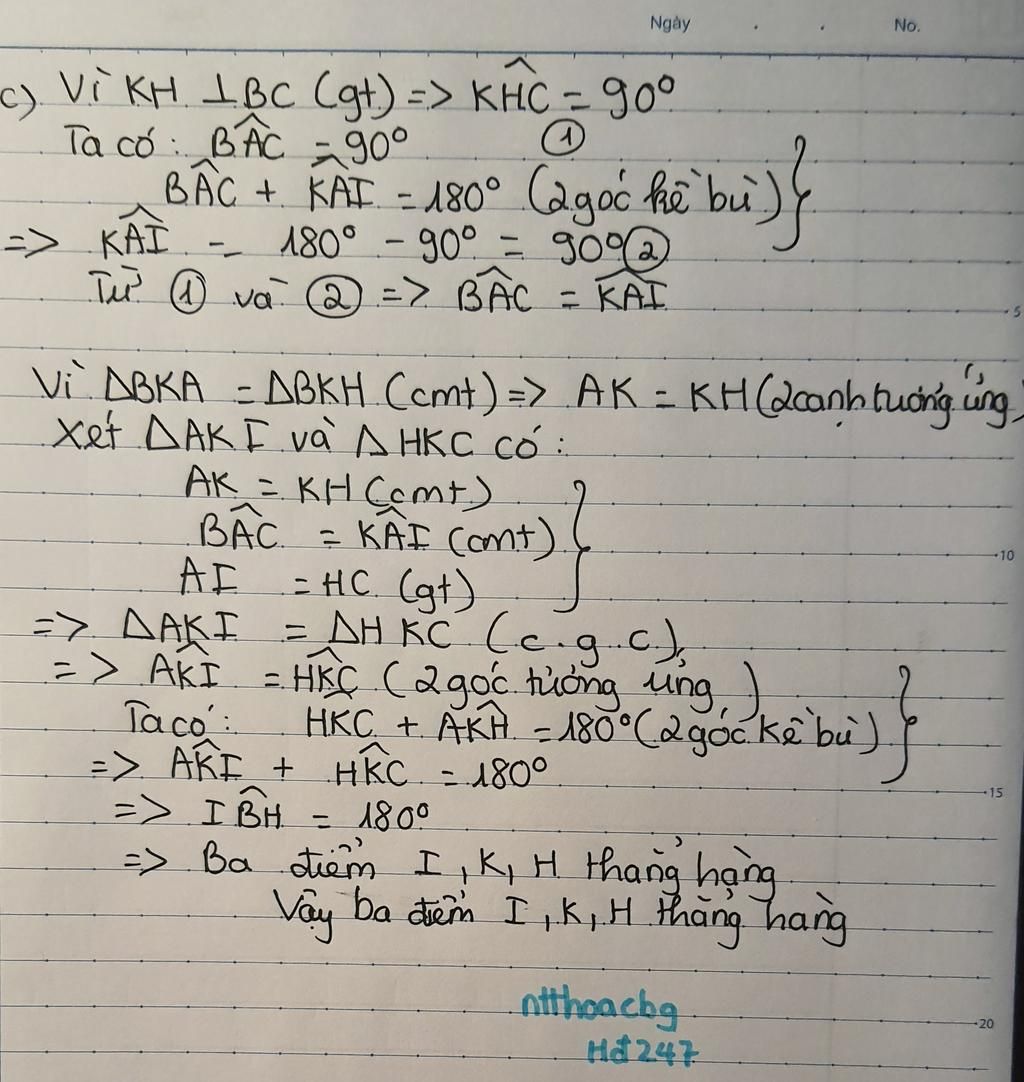 Ngày . . No.
c) Vì KH ⊥ BC (gt) => KĤC = 90°
Ta có: BÂC = 90° ①
BÂC + KÂI = 180° (2 góc kề bù) }
=> KÂI = 180° - 90° = 90° ②
Từ ① và ② => BÂC = KÂI
5
Vì ΔBKA = ΔBKH (cmt) => AK = KH (2 cạnh tướng ứng)
Xét ΔAKI và ΔHKC có:
AK = KH (cmt)
BÂC = KÂI (cmt) }
10
AI = HC (gt)
=> ΔAKI = ΔHKC (c.g.c)
=> AK̂I = HK̂C (2 góc tưởng ứng)
Ta có: HK̂C + AK̂H = 180° (2 góc kề bù) }
=> AK̂I + HK̂C = 180°
15
=> IB̂H = 180°
=> Ba điểm I, K, H thẳng hàng
Vậy ba điểm I, K, H thẳng hàng
ntthoacbg
20
Hđ247